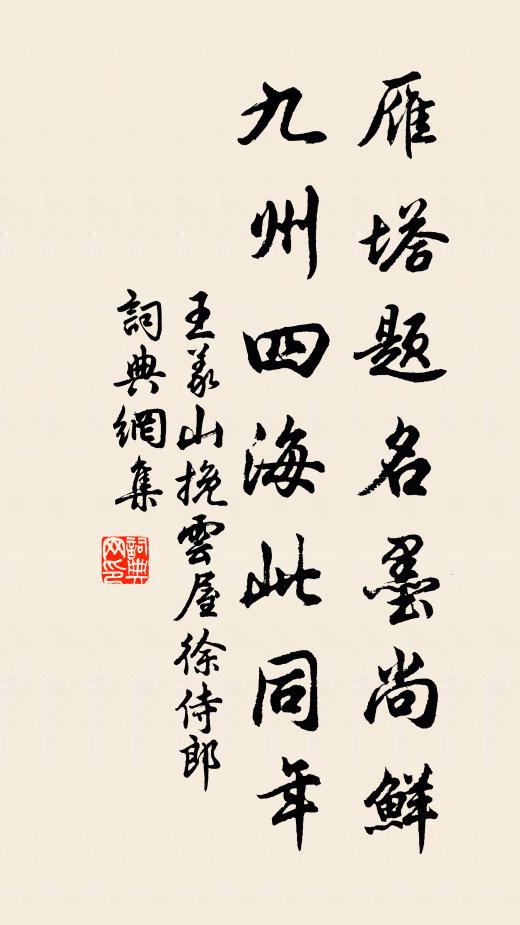 雁塔题名墨尚鮮
九州四海此同年
王義山挽雲屋徐侍郎
詞典網集
詞典网印